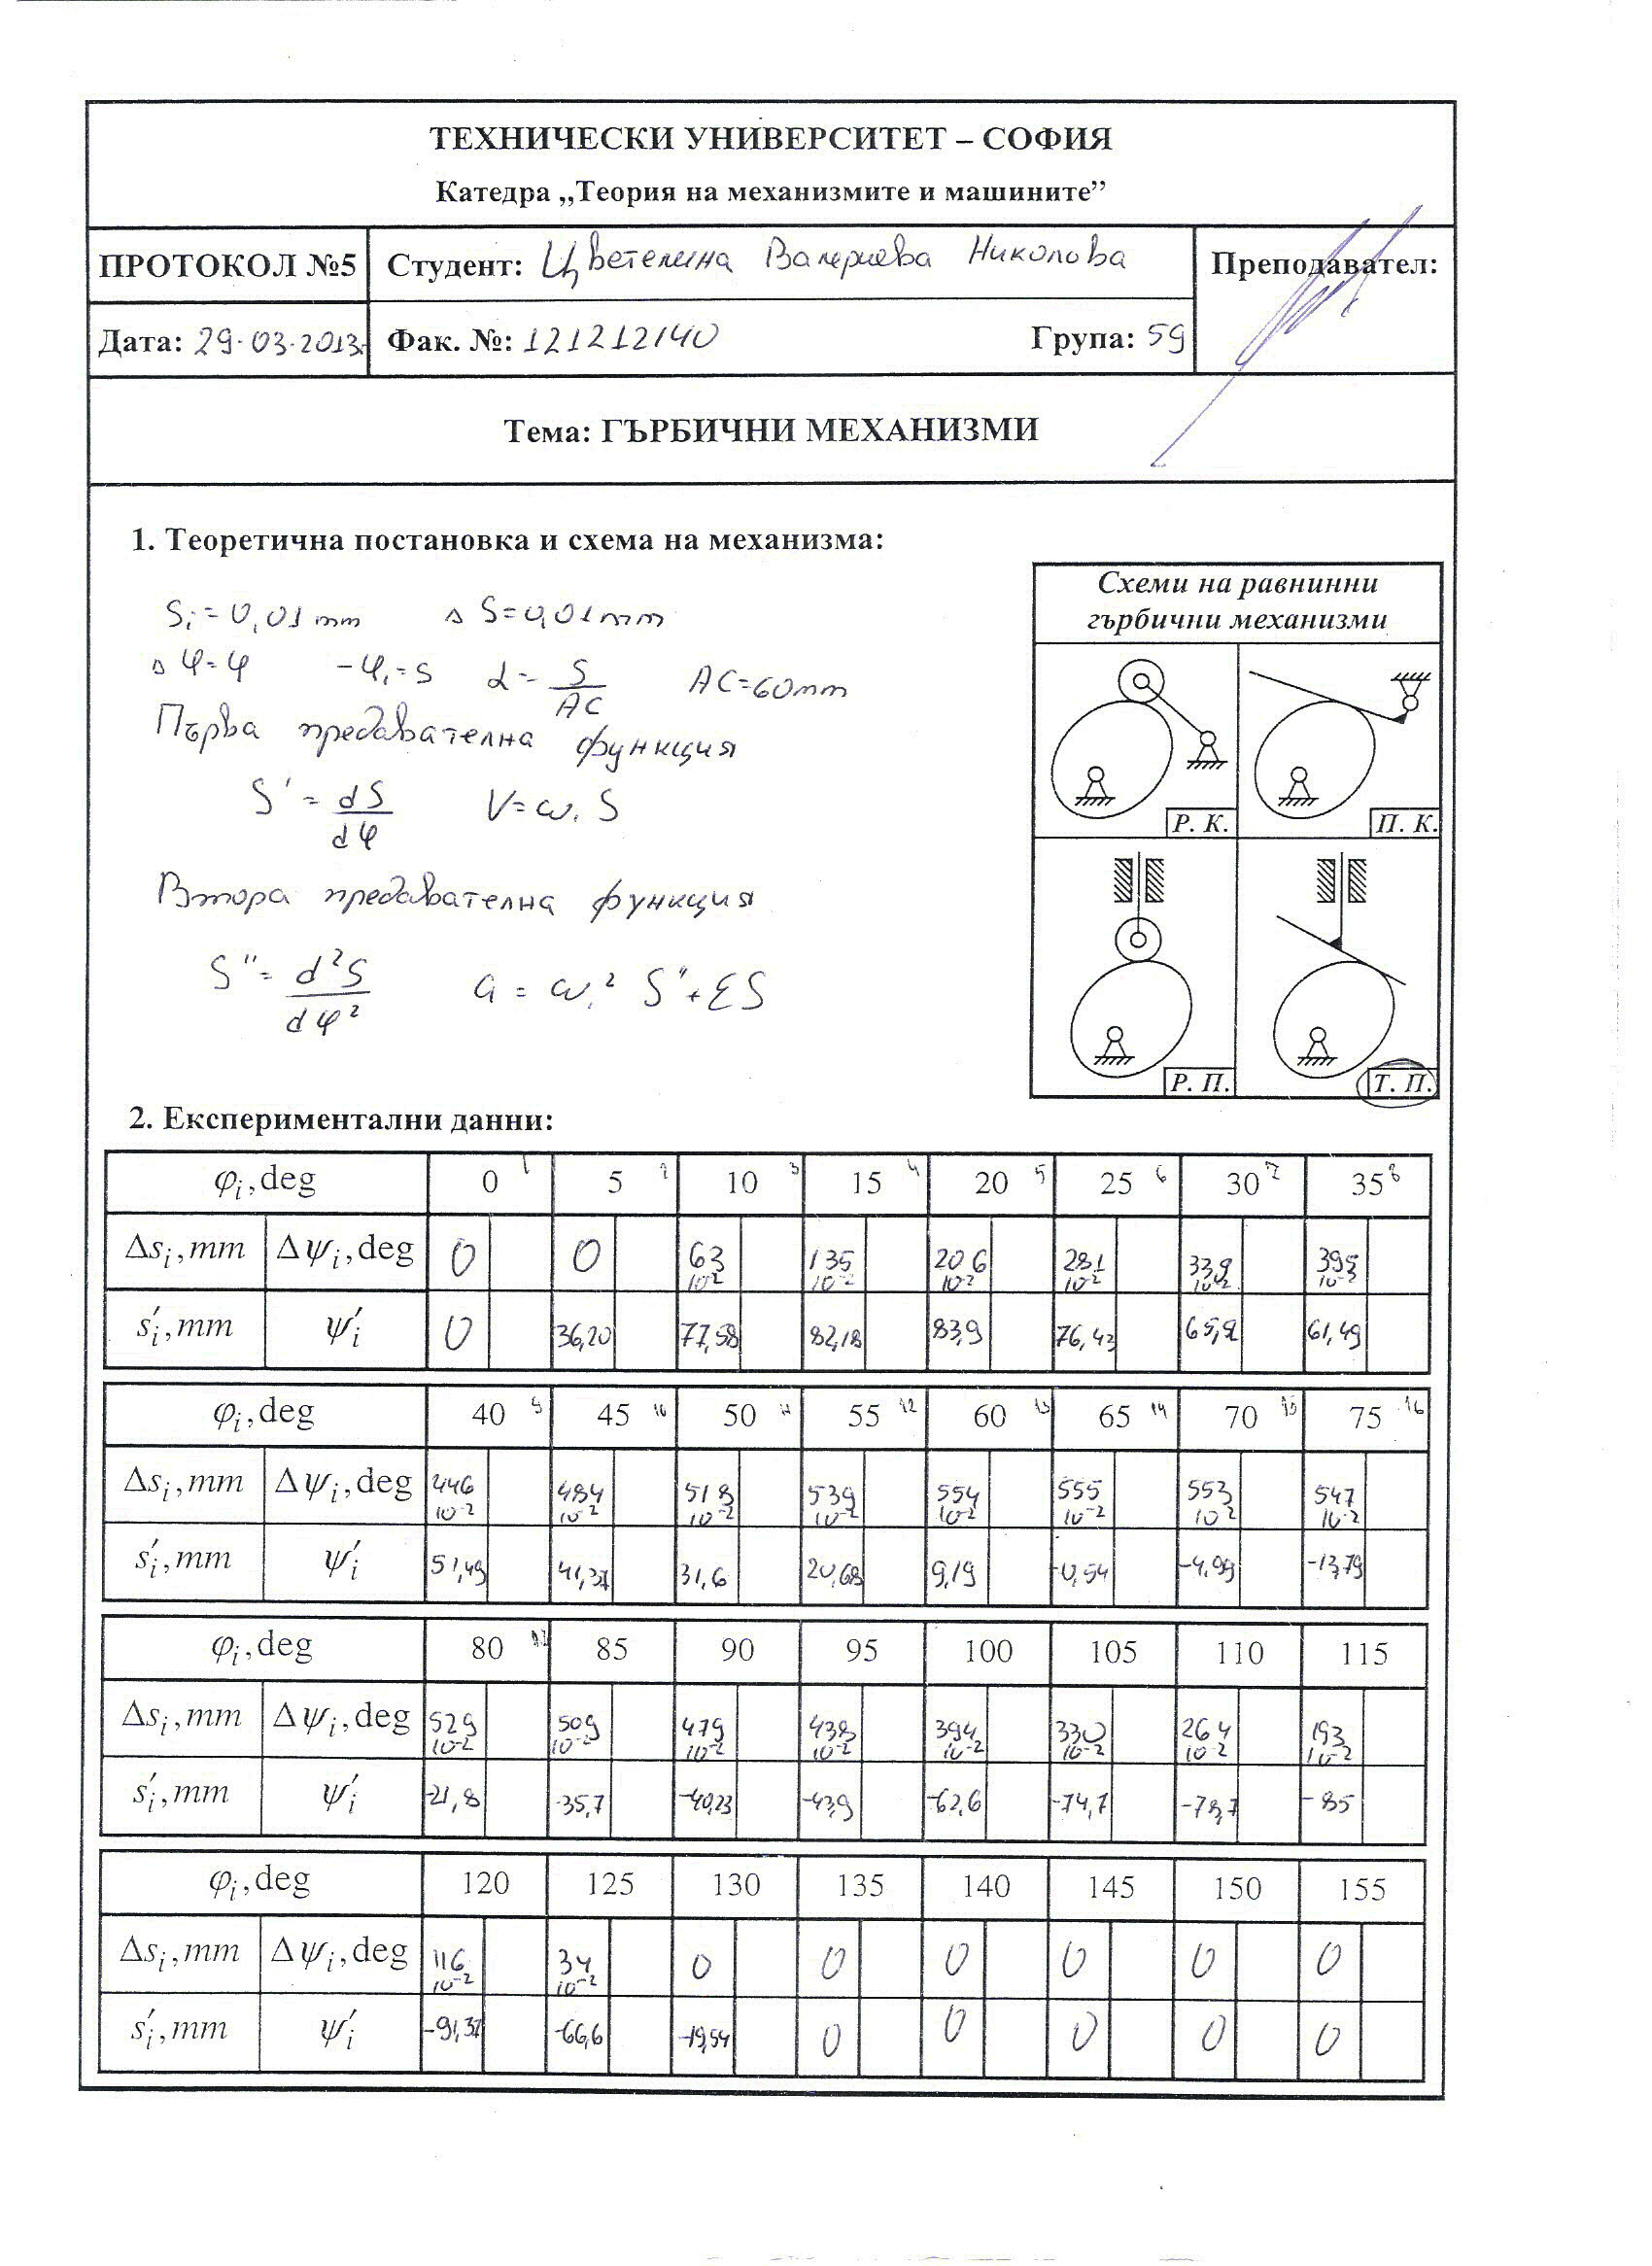 ТЕХНИЧЕСКИ УНИВЕРСИТЕТ – СОФИЯ
Катедра „Теория на механизмите и машините”
ПРОТОКОЛ №5 Студент: Цветелина Валериева Николова Преподавател:
Дата: 29.03.2013. Фак. №: 121212140 Група: 59
Тема: ГЪРБИЧНИ МЕХАНИЗМИ
1. Теоретична постановка и схема на механизма:
Схеми на равнинни
гърбични механизми
Si = 0,01 mm Δ S = 0,01 mm
Δ φ = φ - φ1 = S α = S/AC AC = 60 mm
Първа предавателна функция
S' = dS/dφ V = ω1 S
Втора предавателна функция
S" = d²S/dφ² a = ω1² S" + ES
Р. К. П. К.
Р. П. Т. П.
2. Експериментални данни:
φi, deg 0 1 5 2 10 3 15 4 20 5 25 6 30 7 35 8
Δsi, mm Δψi, deg 0 0 63 10-2 135 10-2 206 10-2 281 10-2 339 10-2 395 10-2
s'i, mm ψ'i 0 36,20 77,58 82,18 83,9 76,43 65,2 61,49
φi, deg 40 9 45 10 50 11 55 12 60 13 65 14 70 15 75 16
Δsi, mm Δψi, deg 446 10-2 484 10-2 518 10-2 539 10-2 554 10-2 555 10-2 553 10-2 547 10-2
s'i, mm ψ'i 51,49 41,37 31,6 20,68 9,19 -0,54 -4,99 -13,79
φi, deg 80 17 85 90 95 100 105 110 115
Δsi, mm Δψi, deg 529 10-2 509 10-2 479 10-2 438 10-2 394 10-2 330 10-2 264 10-2 193 10-2
s'i, mm ψ'i -21,8 -35,7 -40,23 -43,9 -62,6 -74,7 -78,7 -85
φi, deg 120 125 130 135 140 145 150 155
Δsi, mm Δψi, deg 116 10-2 34 10-2 0 0 0 0 0 0
s'i, mm ψ'i -91,37 -66,6 -19,54 0 0 0 0 0